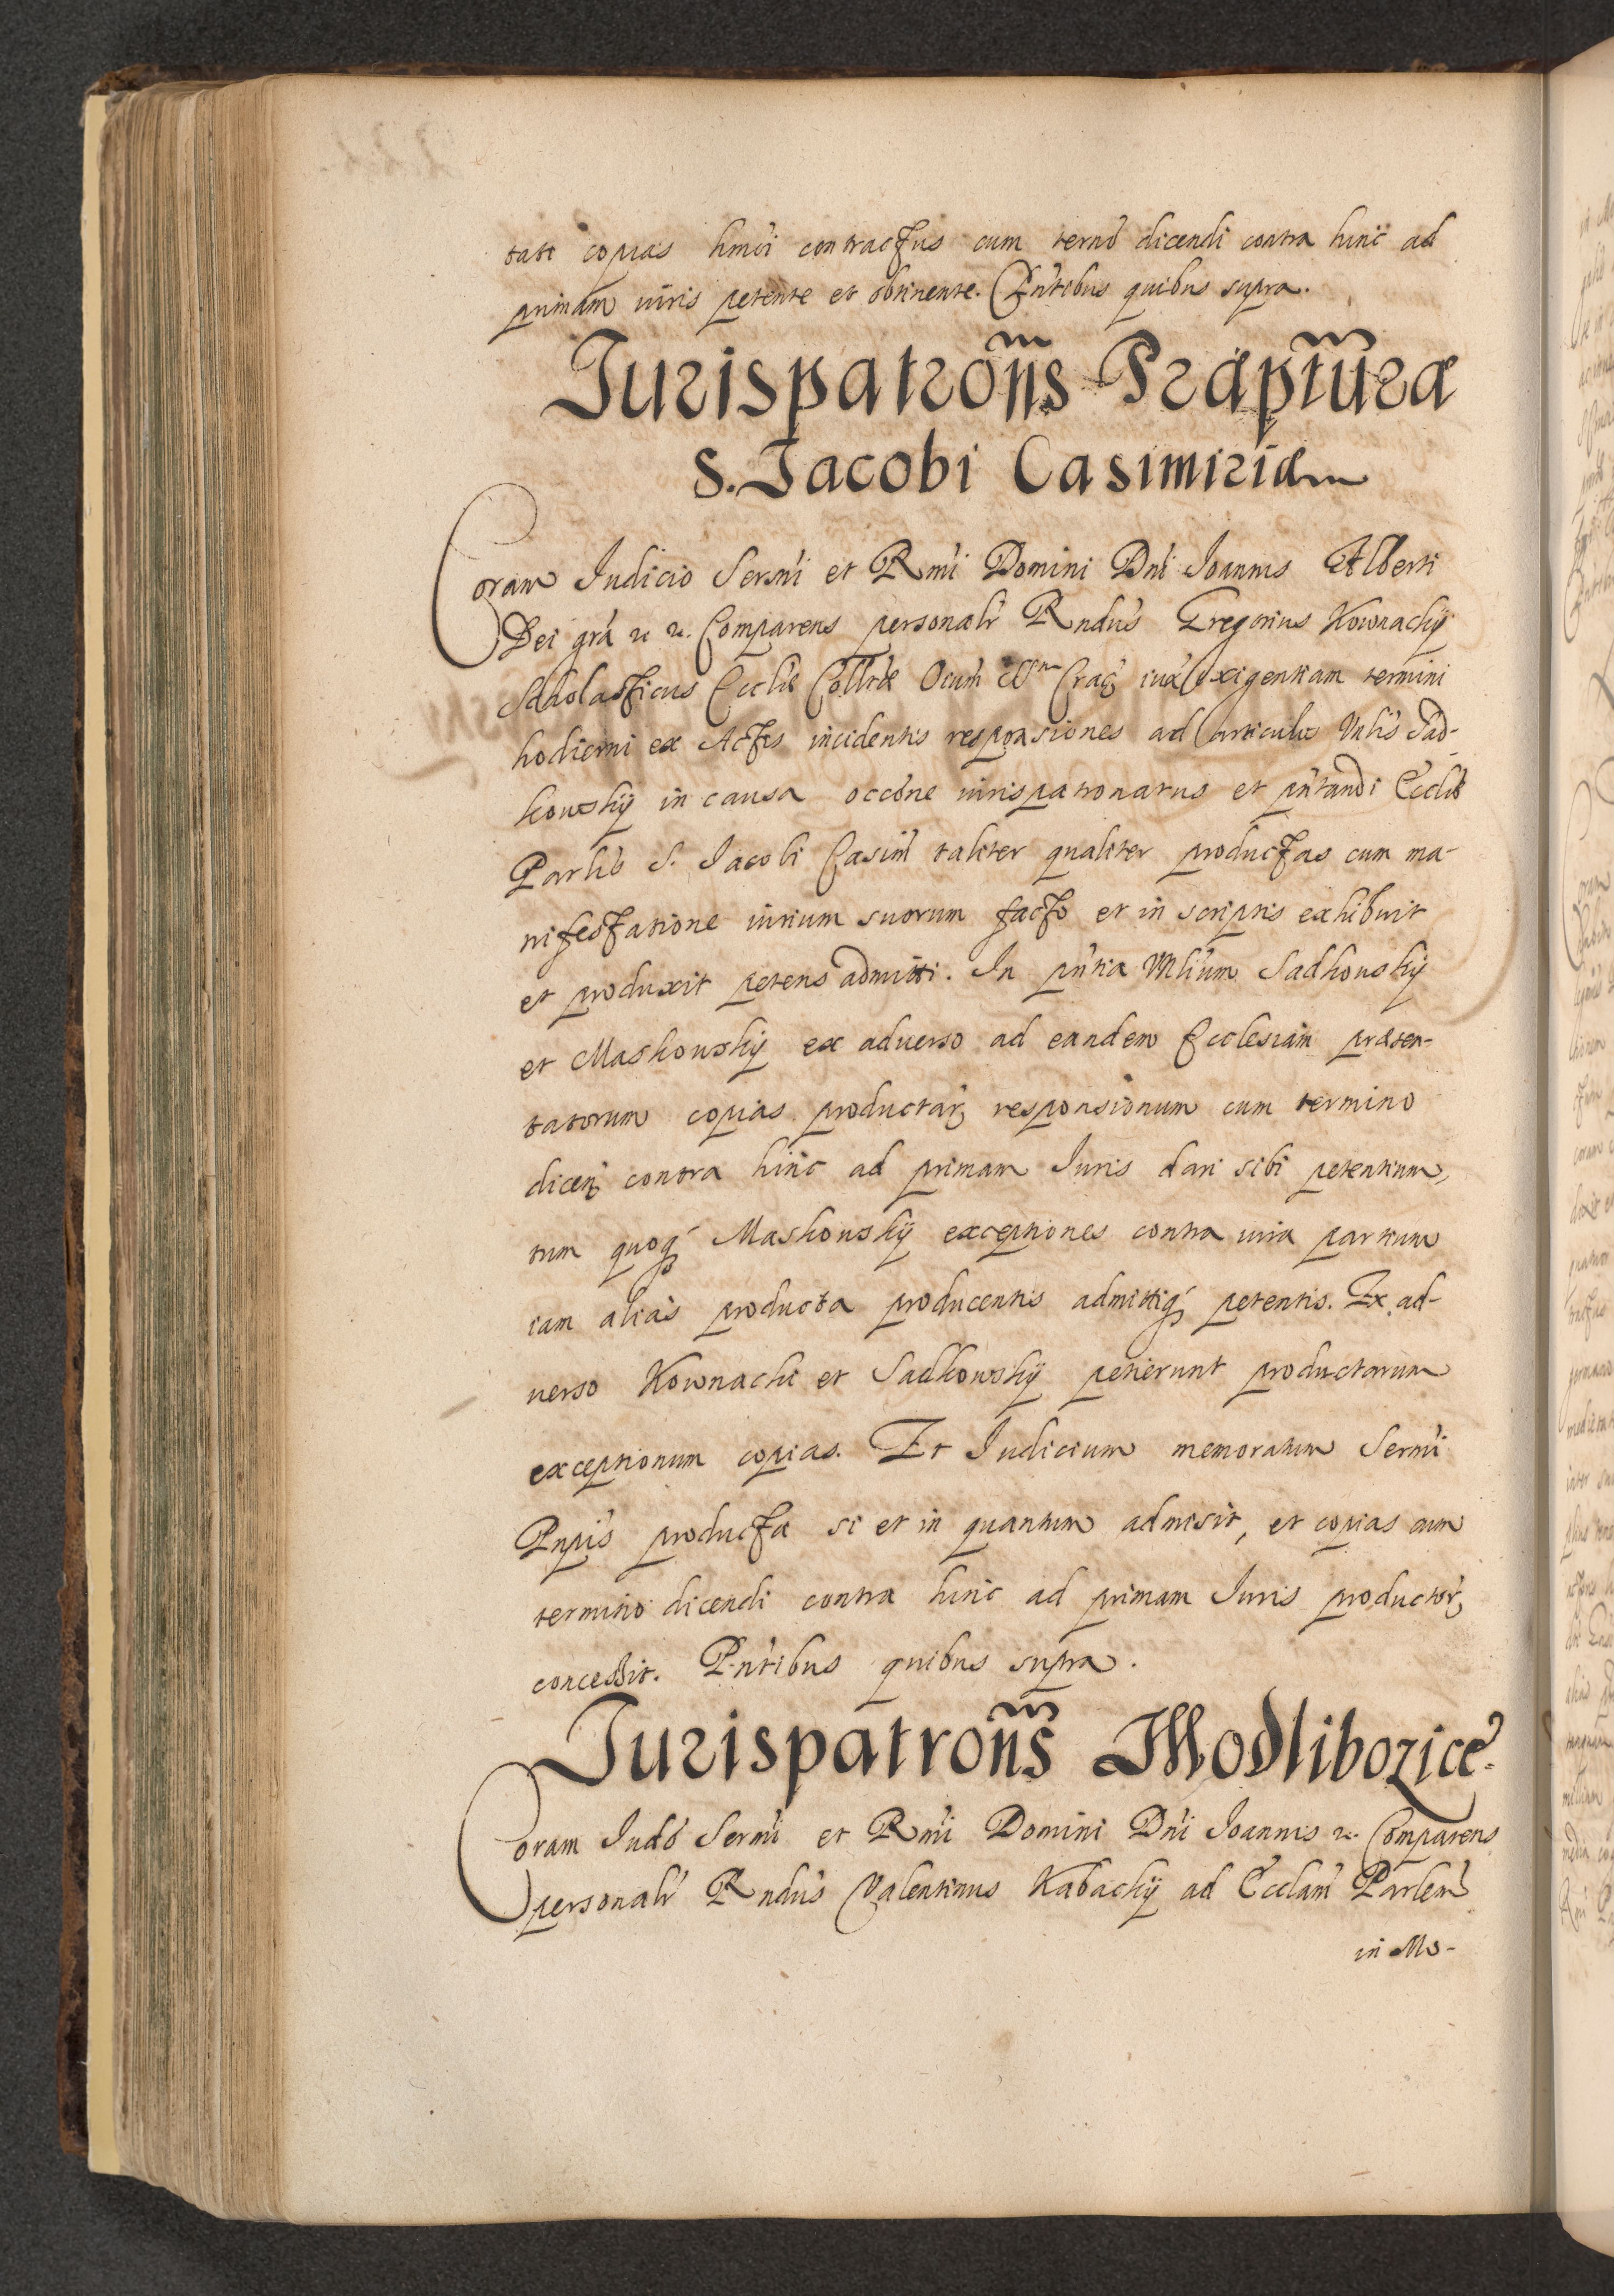 tati copias hmõi contractus cum termõ dicendi contra hinc ad
primam iuris petente et obtinente. Pñtibus quibus supra.
Jurispatroñs Præptura
S. Jacobi Casimirien
Coram Judicio Sersmi et Rmi Domini Dni Joannis Alberti
Dei gra etc etc. Comparens personalr Rndus Gregorius Kownachÿ
Scholasticus Eccliæ Collætæ Oium SSm Crac. iux exigentiam termini
hodierni ex Actis incidentis responsiones ad articulos Vnlis Sad-
kowskÿ in causa occõne iurispatronatus et pñtandi Ecclæ
Parlis S. Jacobi Casim taliter qualiter productas cum ma-
nifestatione iurium suorum facto et in scriptis exhibuit
et produxit petens admitti. In pñtia Vnlium Sadkouskÿ
et Maskouskÿ ex aduerso ad eandem Ecclesiam præsen-
tatorum copias productar responsionum cum termino
dicen contra hinc ad primam Juris dari sibi petentium,
tum quoq Maskouskÿ exceptiones contra iura partium
iam alias producta producentis admittiq petentis. Ex ad-
uerso Kownachi et Sadkowskÿ petierunt productarum
exceptionum copias. Et Judicium memoratum Sermi
Pnpis producta si et in quantum admisit, et copias cum
termino dicendi contra hinc ad primam Juris productor
concessit. Pñtibus quibus supra.
Jurispatroñs Modliborice.
Coram Judõ Sermi et Rmi Domini Dni Joannis etc. Comparens
personalr Rndus Valentinus Kabachÿ ad Ecclam Parlem
in Mo-